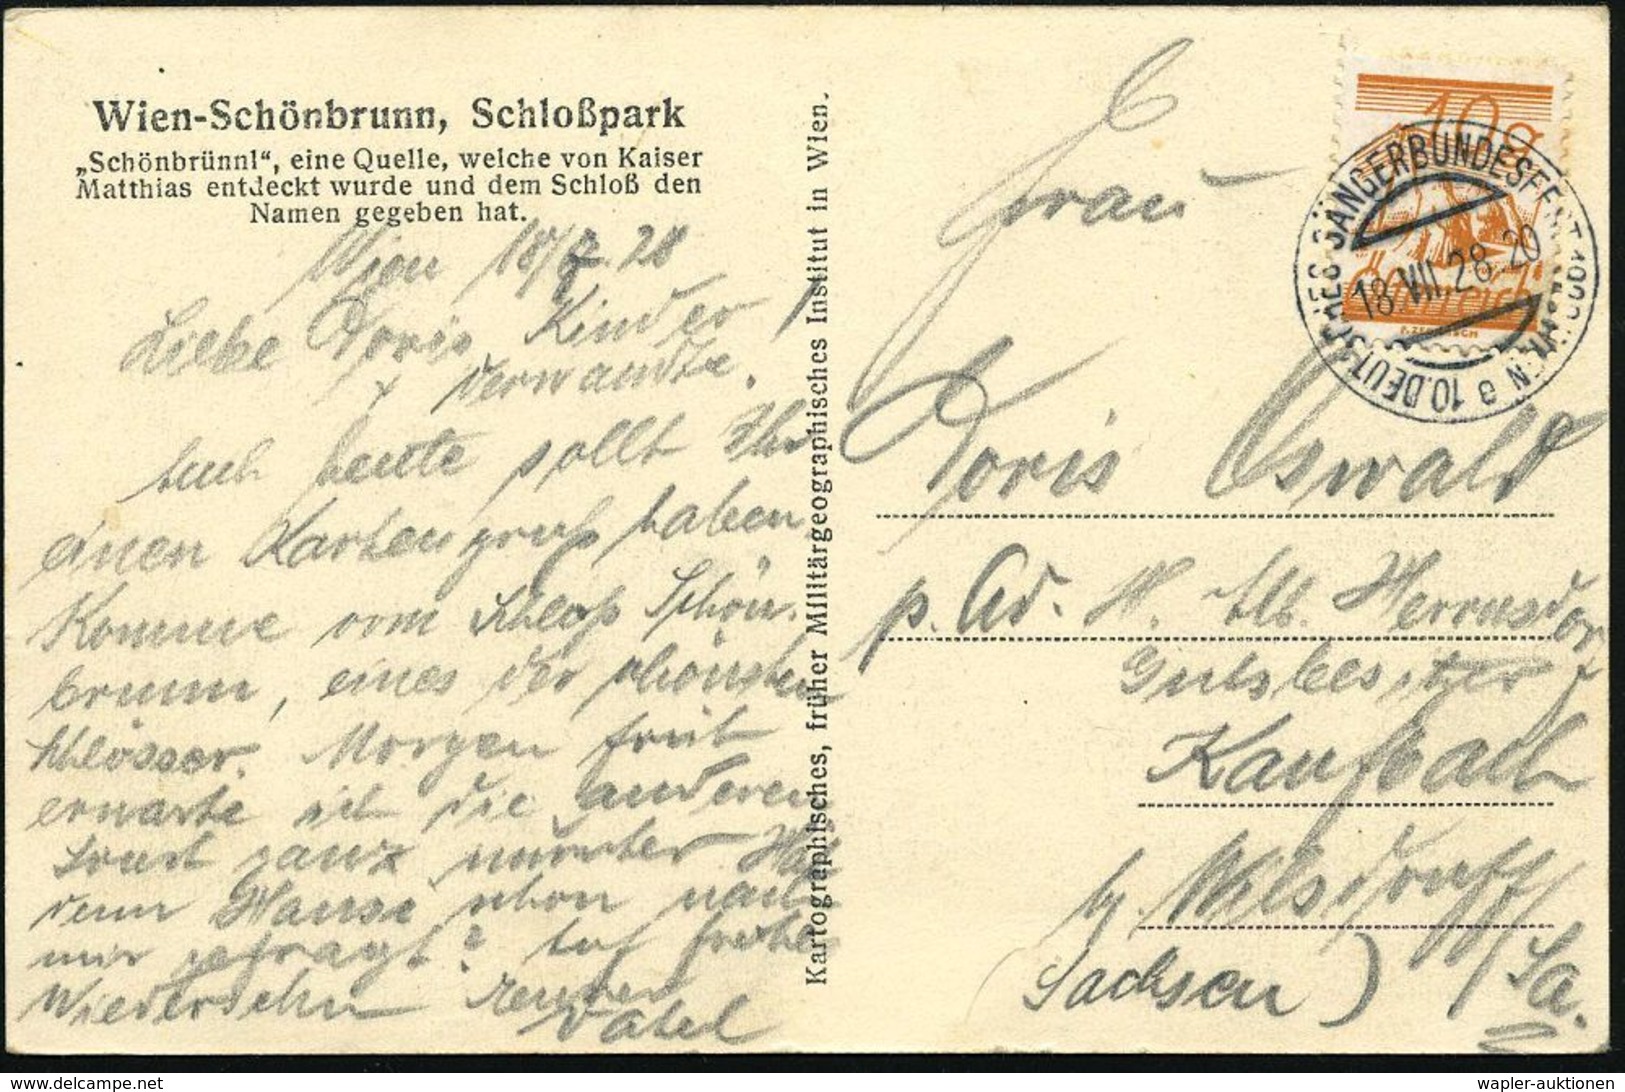 Wien-Schönbrunn, Schloßpark
„Schönbrünnl“, eine Quelle, welche von Kaiser
Matthias entdeckt wurde und dem Schloß den
Namen gegeben hat.
Wien 18/7. 28
Liebe Doris, Kinder
+ Verwandte.
Auch heute sollt Ihr
einen Kartengruß haben
Komme vom Schloß Schön-
brunn, eines der schönsten
Schlösser. Morgen früh
erwarte ich die anderen
sonst ganz munter Hat
denn Hansi schon nach
mir gefragt? Auf frohes
Wiedersehn
Vatel
Kartographisches, früher Militärgeographisches Institut in Wien.
Frau
Doris Oswald
p. Ad. H. Alb. Herrnsdorf
Gutsbesitzer
Kaufbach
b/ Wilsdruff/
Sa.
(Sachsen)
10 g
Österreich
10. DEUTSCHES SÄNGERBUNDESFEST 1928 WIEN
18.VII.28.20
wapler-auktionen